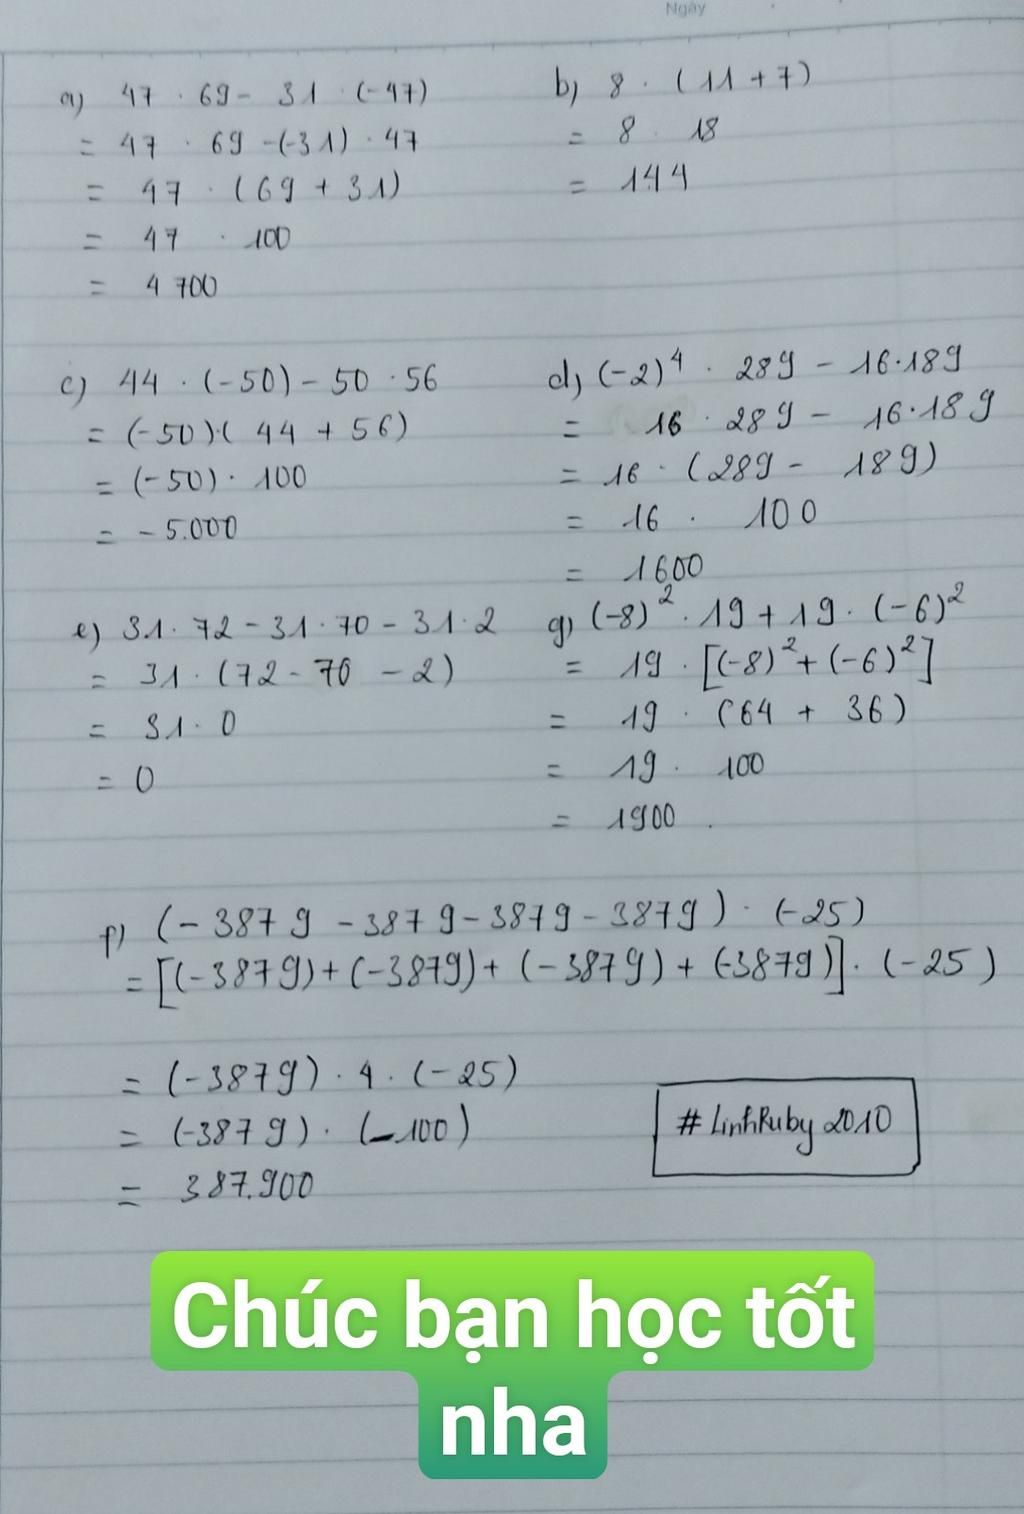 Ngày
a) 47 . 69 - 31 . (-47)
= 47 . 69 - (-31) . 47
= 47 . (69 + 31)
= 47 . 100
= 4 700
b) 8 . (11 + 7)
= 8 . 18
= 144
c) 44 . (-50) - 50 . 56
= (-50).( 44 + 56)
= (-50) . 100
= - 5.000
d) (-2)⁴ . 289 - 16.189
= 16 . 289 - 16.189
= 16 . (289 - 189)
= 16 . 100
= 1600
e) 31. 72 - 31. 70 - 31. 2
= 31. (72 - 70 - 2)
= 31. 0
= 0
g) (-8)² . 19 + 19 . (-6)²
= 19 . [(-8)² + (-6)²]
= 19 . (64 + 36)
= 19 . 100
= 1900 .
f) (- 3879 - 3879 - 3879 - 3879) . (-25)
= [(-3879) + (-3879) + (-3879) + (-3879)] . (-25)
= (-3879) . 4 . (-25)
= (-3879) . (-100)
= 387.900
# LinhRuby 2010
Chúc bạn học tốt
nha